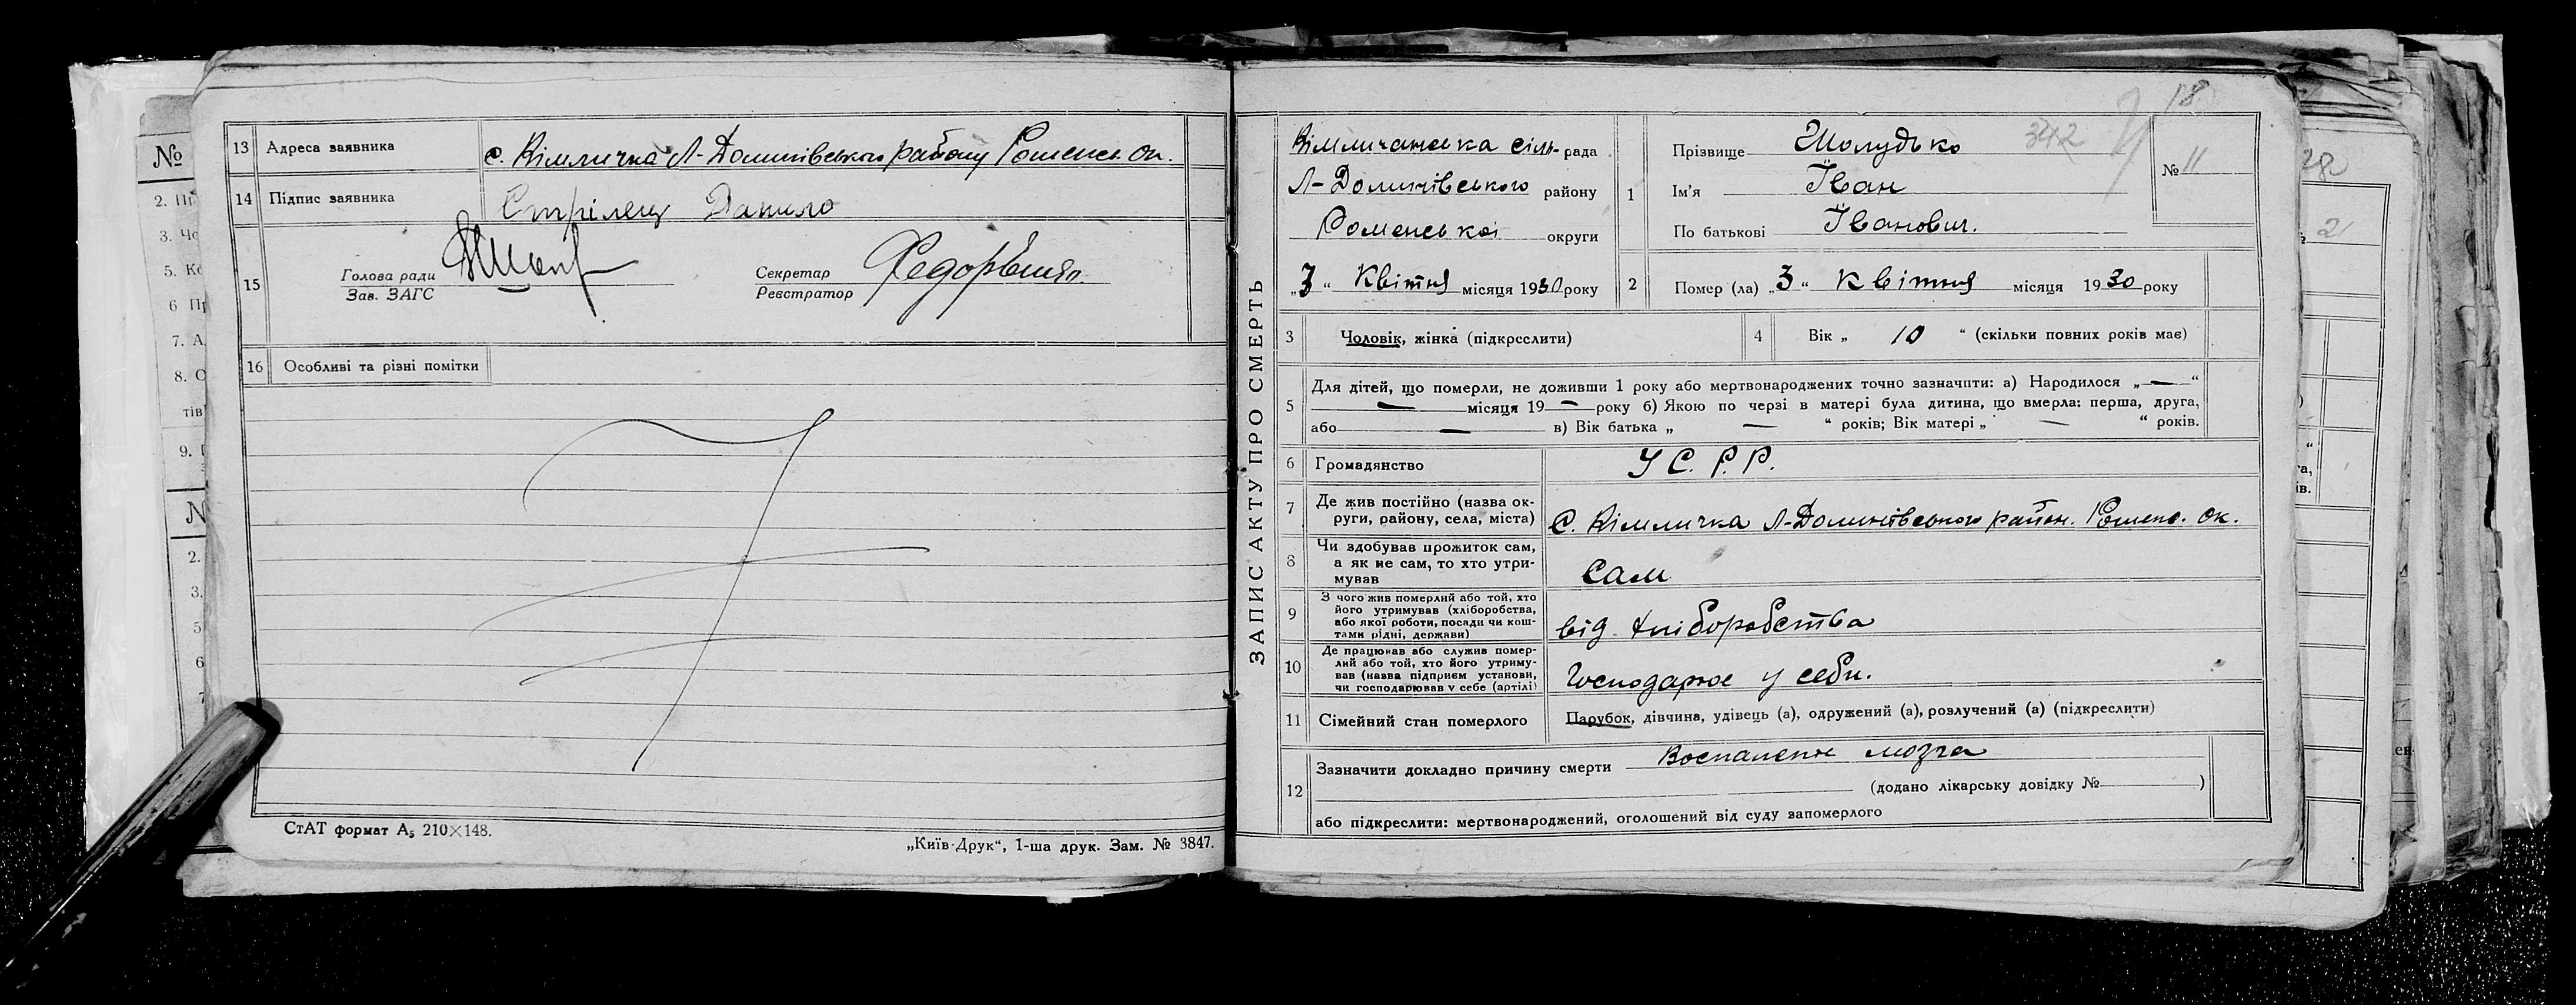 №
2. Пі
3. Чо
5. Ко
7. А
8. С
тів
9.
2.
3.
5
6
13 Адреса заявника с. Кімличка Л-Долинівського району Роменсь ок.
14 Підпис заявника Стрілець Данило
15 Голова ради
Зав. ЗАГС
Секретар
Реєстратор
16 Особливі та різні помітки
СтАТ формат А₅ 210×148.
„Київ-Друк“, 1-ша друк. Зам. № 3847.
18
342
ЗАПИС АКТУ ПРО СМЕРТЬ
Кімличанська сіль-рада
Л-Долинівського району
Роменської округи
„3“ Квітня місяця 1930 року
1 Прізвище Шолудько
Ім'я Іван
По батькові Іванович.
№ 11
2 Помер (ла) „3“ Квітня місяця 1930 року
3 Чоловік, жінка (підкреслити)
4 Вік „ 10 “ (скільки повних років має)
5 Для дітей, що померли, не доживши 1 року або мертвонароджених точно зазначити: а) Народилося „—“
— місяця 19 — року б) Якою по черзі в матері була дитина, що вмерла: перша, друга,
або — в) Вік батька „ — “ років; Вік матері „ — “ років.
6 Громадянство У С. Р. Р.
7 Де жив постійно (назва ок-
руги, району, села, міста) С. Кімличка Л-Долинівського район. Роменс. ок.
8 Чи здобував прожиток сам,
а як не сам, то хто утри-
мував Сам
9 З чого жив померлий або той, хто
його утримував (хліборобства,
або якої роботи, посади чи кош-
тами рідні, держави) від хліборобства
10 Де працював або служив помер-
лий або той, хто його утриму-
вав (назва підприєм установи,
чи господарював у себе (артілі) Господарює у себи.
11 Сімейний стан померлого Парубок, дівчина, удівець (а), одружений (а), розлучений (а) (підкреслити)
12 Зазначити докладно причину смерти Воспалення мозга
(додано лікарську довідку № )
або підкреслити: мертвонароджений, оголошений від суду запомерлого
28
2